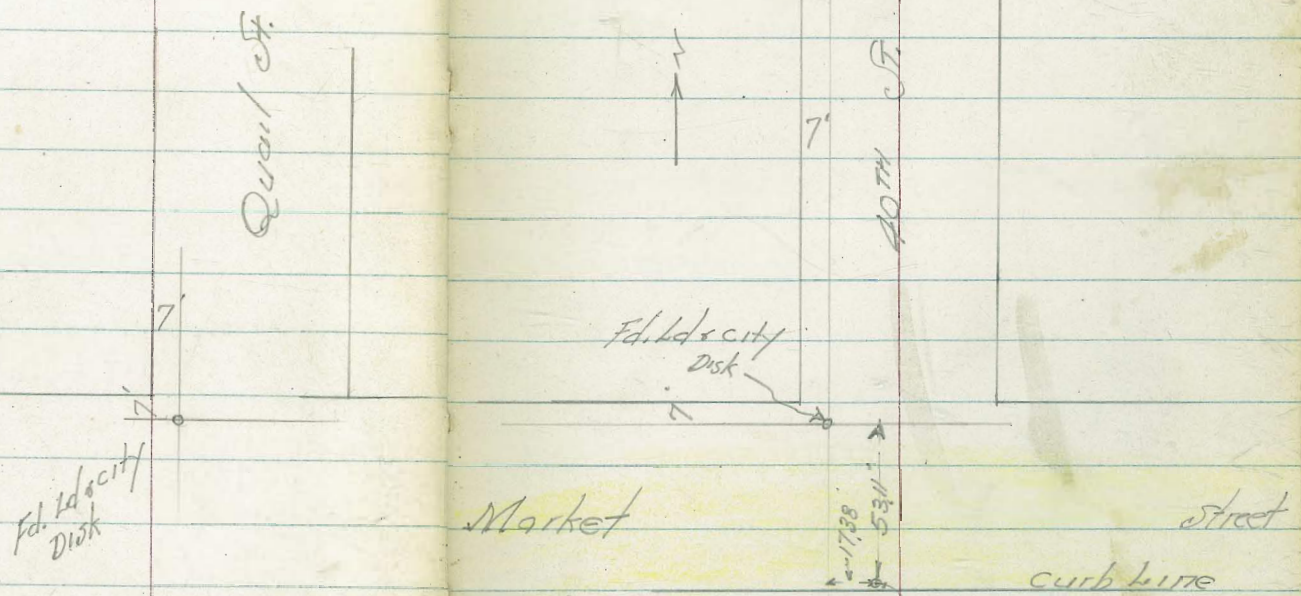 Quail St.
7'
7'
Fd. Ld & city
Disk
N
7'
40TH ST.
Fd. Ld & city
Disk
7'
Market Street
17.38'
53.11'
curb Line